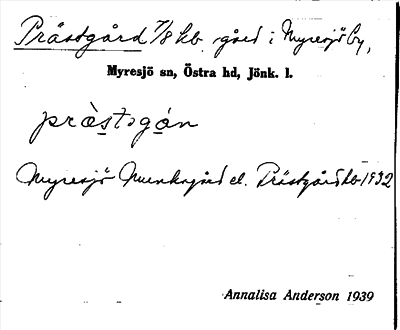 Prästgård 7/8 kb gård i Myresjö by,
Myresjö sn, Östra hd, Jönk. l.
prä̀stsgán
Myresjö Munksgård el. Prästgård kb 1932
Annalisa Anderson 1939